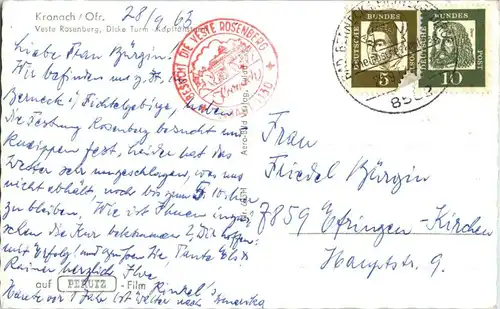 Kronach / Ofr.
Veste Rosenberg, Dicke Turm
28/9 63
BESUCHT DIE VESTE ROSENBERG
Kronach
Liebe Frau Bürgin.
Wir befinden uns z. Zt. in
Berneck i/ Fichtelgebirge, haben
die Festung Rosenberg besucht und
kneippen fest, leider hat das
Wetter sehr umgeschlagen, was uns
nicht abhält, noch bis zum 5. 10. hier
zu bleiben. Wie ist Ihnen inzwi-
schen die Kur bekommen? Die hoffen-
mit Erfolg! und grüßen Sie Tante Else
Rainer herzlich Ihre
Rinkel's
Heute vor 1 Jahr ist Dieter nach Amerika
auf PERUTZ - Film
Aero-Bild Verlag,
DEUTSCHE BUNDESPOST
5
DEUTSCHE BUNDESPOST
10
Frau
Friedel Bürgin
7859 Efringen-Kirchen
Hauptstr. 9.